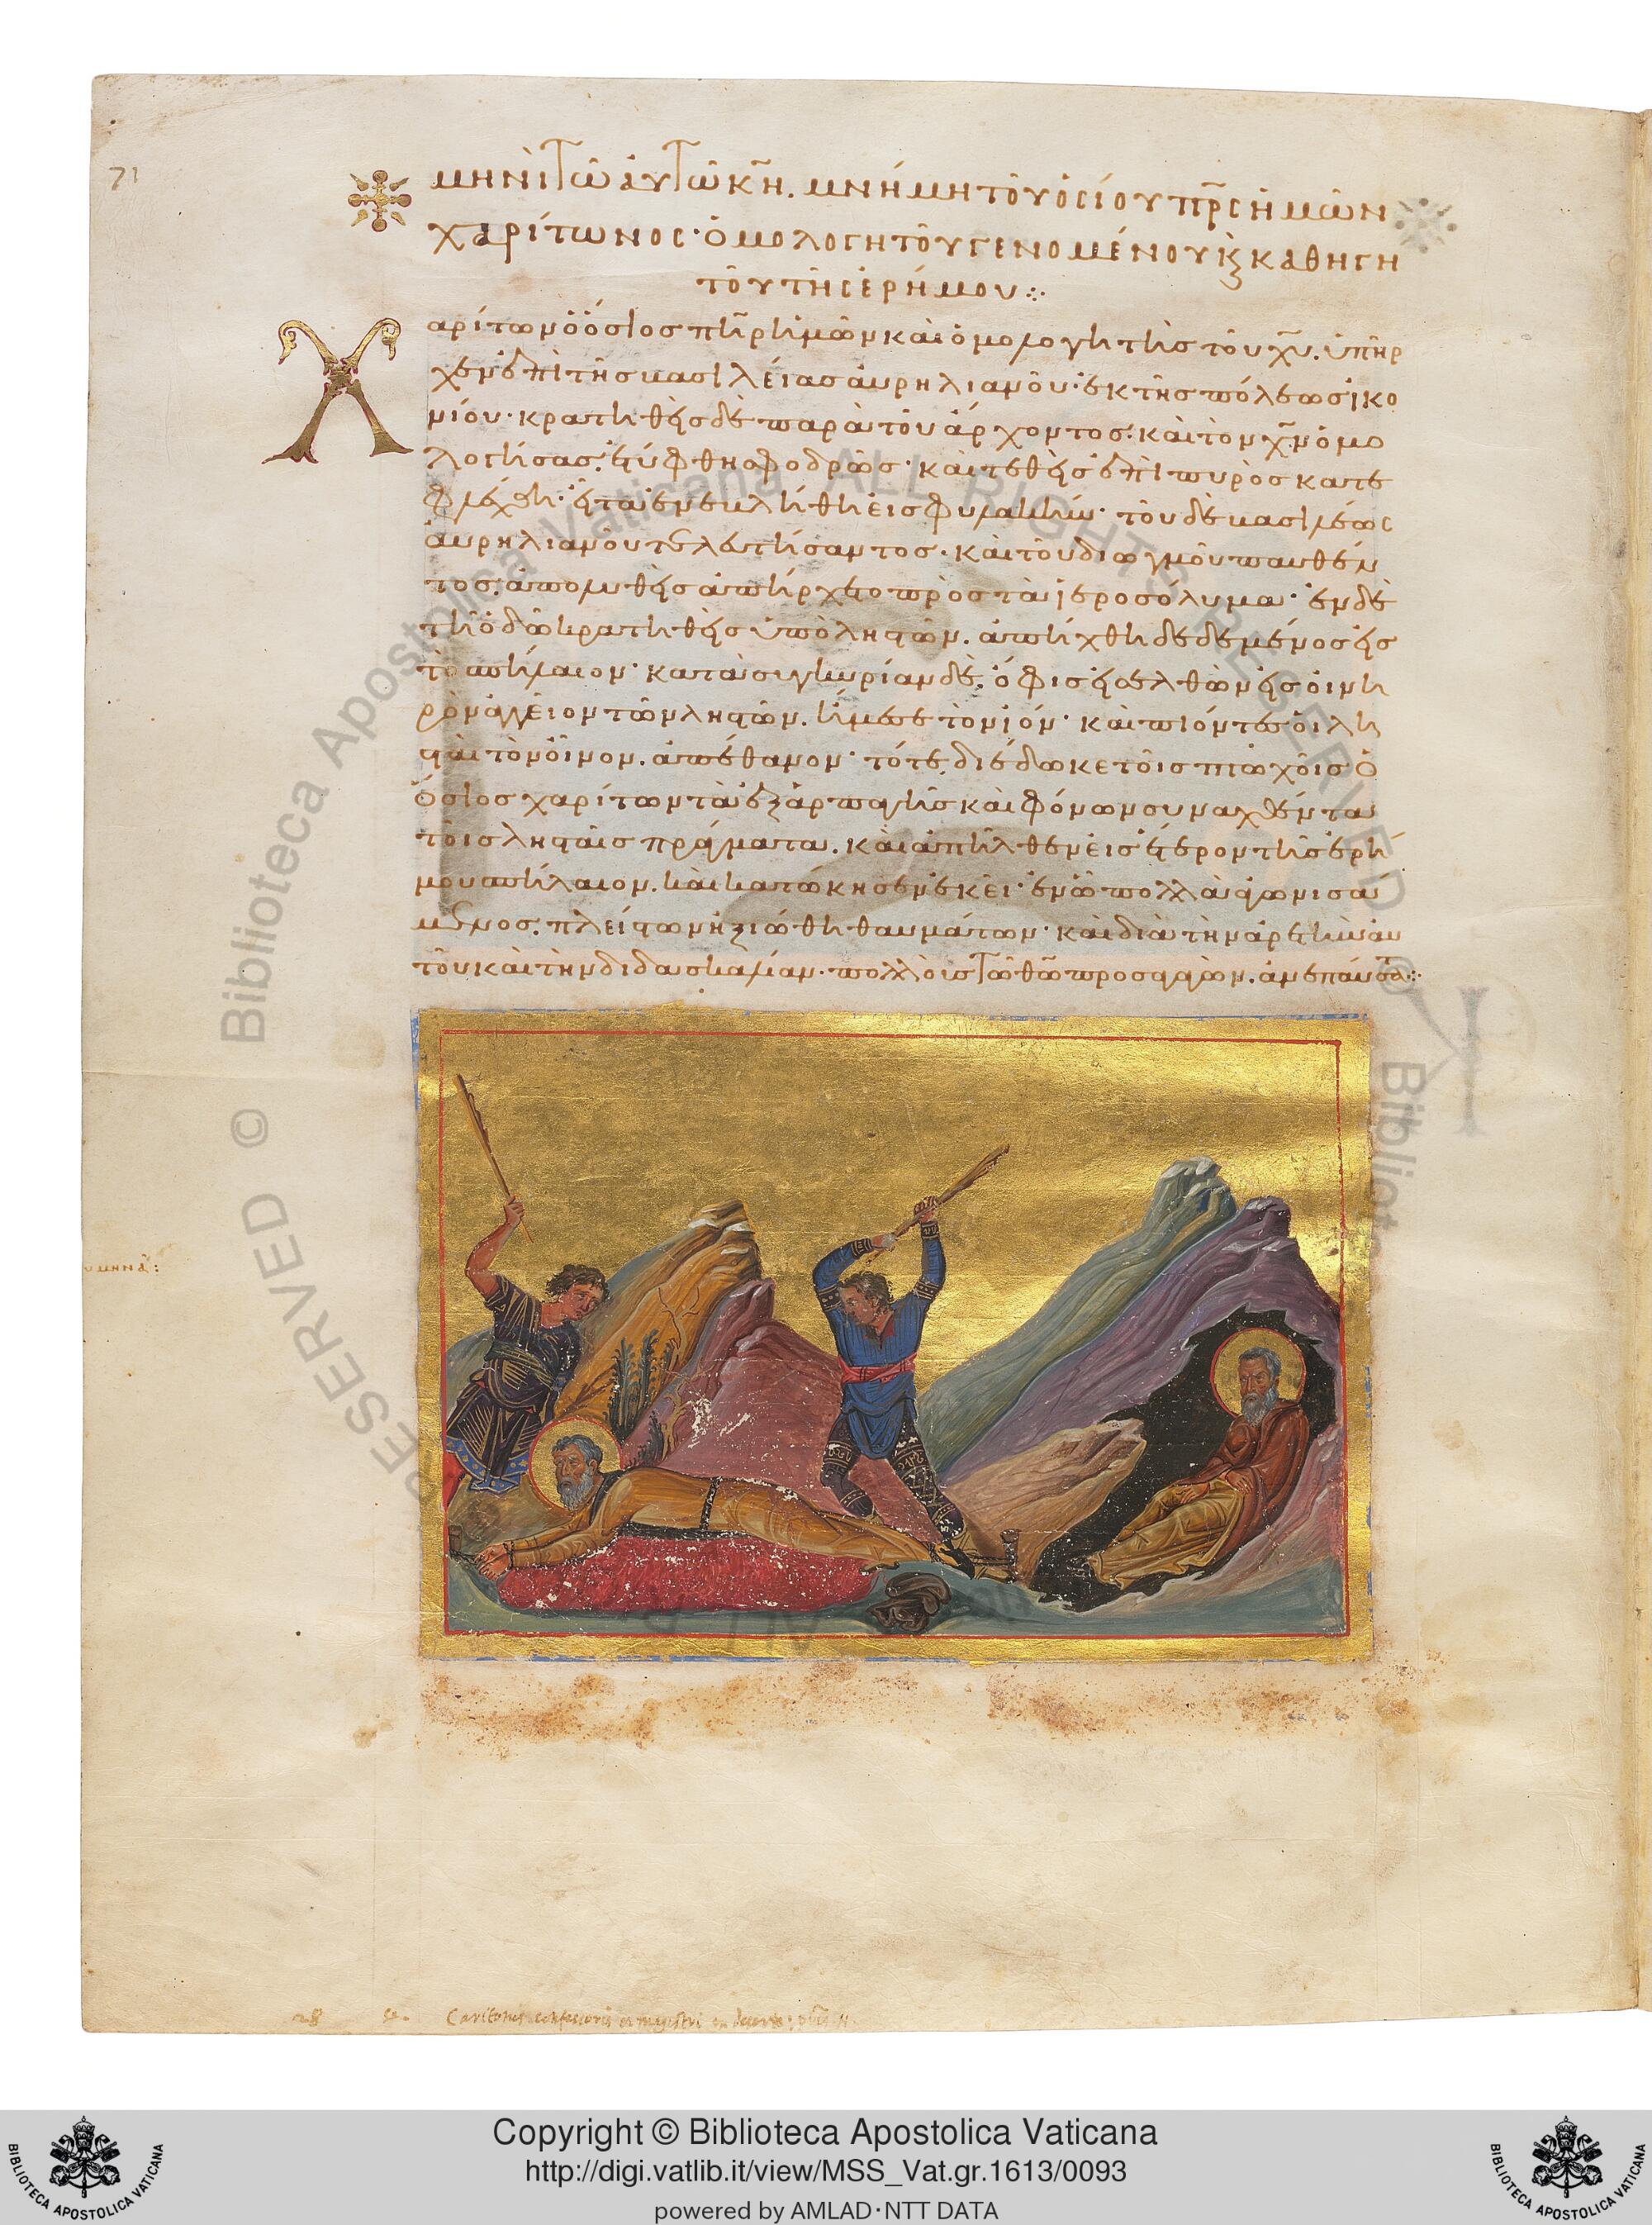 71
μηνὶ τῶ αὐτῶ κη̄. μνήμη τοῦ ὁσίου πρ̄ς ἡμῶν
χαρίτωνος· ὁμολογητοῦ γενομένου κ̣ καθηγη
τοῦ τῆς ἐρήμου :·
Χαρίτων ὁ ὅσιος πῆρ ἡμῶν καὶ ὁμολογητὴς τοῦ χῦ. ὑπῆρ
χεν ἐπὶ τῆς βασιλείας αὐρηλιανοῦ· ἐκ τῆς πόλεως ἰκο
νίου· κρατηθεὶς δὲ παρὰ τοῦ ἄρχοντος. καὶ τὸν χν̄ ὁμο
λογήσας. ἐτύφθη σφοδρῶς· καὶ τεθεὶς ἐπὶ πυρὸς κατε
φλέχθη· εἶτα ἐνεβλήθη εἰς φυλακήν· τοῦ δὲ βασιλέως
αὐρηλιανοῦ τελευτήσαντος. καὶ τοῦ διωγμοῦ παυθέν
τος. ἀπολυθεὶς ἀπήρχετο πρὸς τὰ ἱεροσόλυμα· ἐν δὲ
τῆ ὁδῶ κρατηθεὶς ὑπὸ ληστῶν. ἀπήχθη δεδεμένος εἰς
τὸ σπήλαιον· κατὰ συγκυρίαν δὲ. ὄφις εἰσελθὼν εἰς οἰνη
ρὸν ἀγγεῖον τῶν ληστῶν. ἤμεσε τὸν ἰόν· καὶ πιόντες οἱ λη
σταὶ τὸν οἶνον. ἀπέθανον· τότε διέδωκε τοῖς πτωχοῖς ὁ
ὅσιος χαρίτων τὰ ἐξ ἁρπαγῆς καὶ φόνων συναχθέντα
τοῖς λησταῖς πράγματα. καὶ ἀπῆλθεν εἰς ἕτερον τῆς ἐρή
μου σπήλαιον. καὶ κατώκησεν ἐκεῖ· ἐν ῶ πολλὰ ἀγωνισά
μενος. πλείστων ἠξιώθη θαυμάτων· καὶ διὰ τὴν ἀρετὴν αὐ
τοῦ καὶ τὴν διδασκαλίαν. πολλοὺς τῶ θῶ προσαγαγὼν. ἀνεπαύσατο :·
μηνᾶ :
28 Caritonis confessoris et magistri
© Biblioteca Apostolica Vaticana ALL RIGHTS RESERVED
Copyright © Biblioteca Apostolica Vaticana
http://digi.vatlib.it/view/MSS_Vat.gr.1613/0093
powered by AMLAD·NTT DATA
BIBLIOTECA APOSTOLICA VATICANA
BIBLIOTECA APOSTOLICA VATICANA